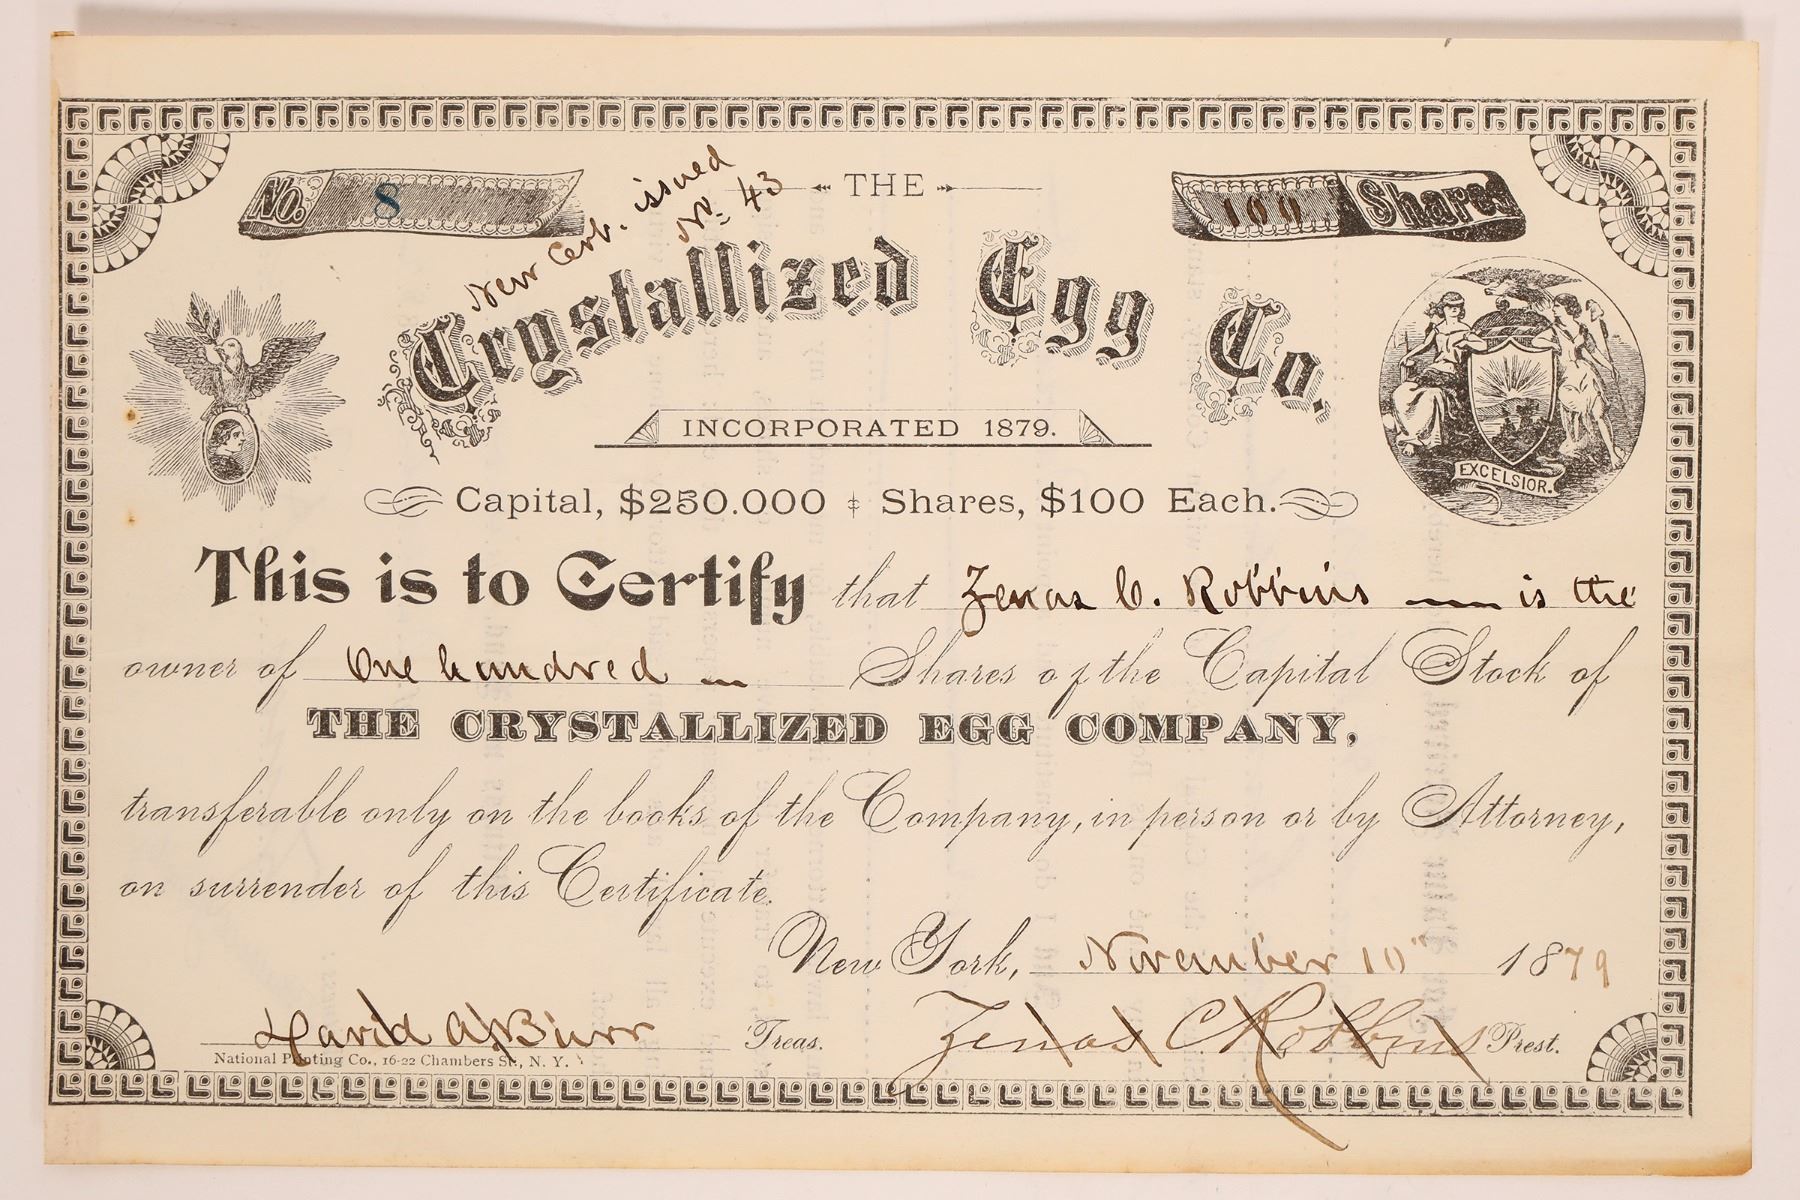 No. 8
New Cert. issued
No. 43
THE
100 Shares
Crystallized Egg Co.
INCORPORATED 1879.
EXCELSIOR.
Capital, $250.000 Shares, $100 Each.
This is to Certify that Zenas C. Robbins is the
owner of One hundred Shares of the Capital Stock of
THE CRYSTALLIZED EGG COMPANY,
transferable only on the books of the Company, in person or by Attorney,
on surrender of this Certificate.
New York, November 10" 1879
David A Burr Treas. Zenas C Robbins Prest.
National Printing Co., 16-22 Chambers St., N. Y.